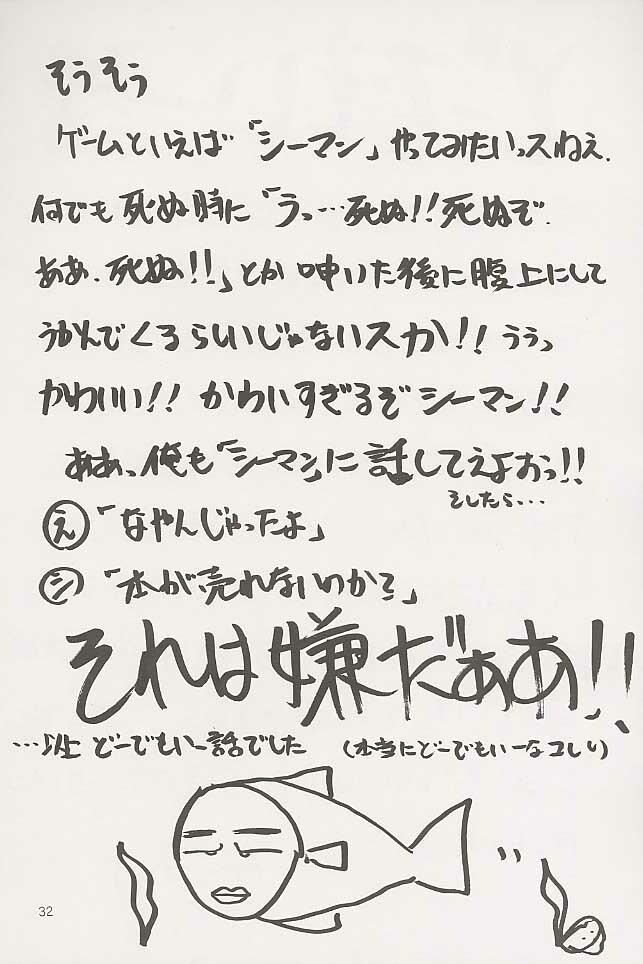 そうそう
ゲームといえば「シーマン」やってみたいっスねえ.
何でも死ぬ時に「うっ…死ぬ!!死ぬぞ.
ああ.死ぬ!!」とか呻いた後に腹上にして
うかんでくるらしいじゃないスか!! ううっ
かわいい!! かわいすぎるぞシーマン!!
ああっ俺も「シーマン」に話してえよおっ!!
そしたら…
え「なやんじゃったよ」
シ「本が売れないのか?」
それは嫌だぁあ!!
…以上 どーでもいー話でした (本当にどーでもいーなコレ！)
32